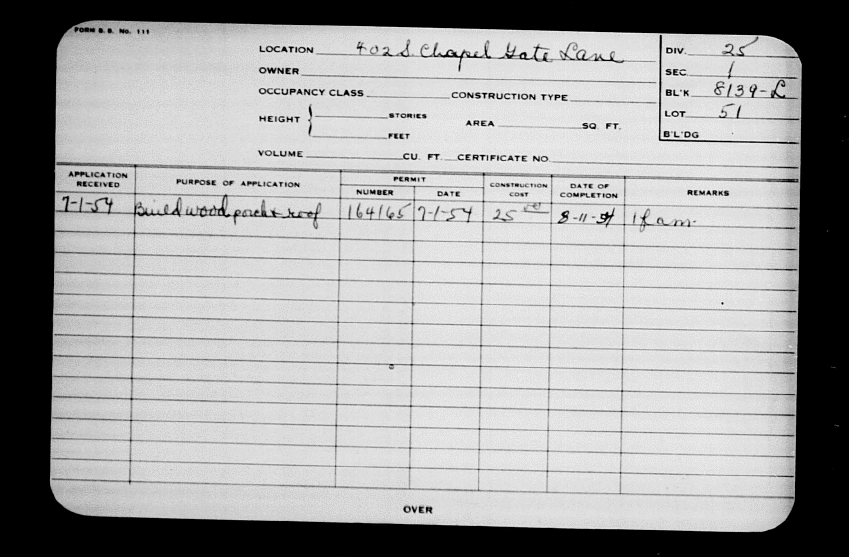 FORM B.B. No. 111
LOCATION 402 S. Chapel Gate Lane
DIV. 25
OWNER
SEC. 1
OCCUPANCY CLASS CONSTRUCTION TYPE
BL'K 8139-L
HEIGHT { STORIES
FEET
AREA SQ. FT.
LOT 51
B'L'DG
VOLUME CU. FT. CERTIFICATE NO.
APPLICATION RECEIVED PURPOSE OF APPLICATION PERMIT NUMBER DATE CONSTRUCTION COST DATE OF COMPLETION REMARKS
7-1-54 Build wood porch & roof 164165 7-1-54 25 00 8-11-54 1 fam.
OVER